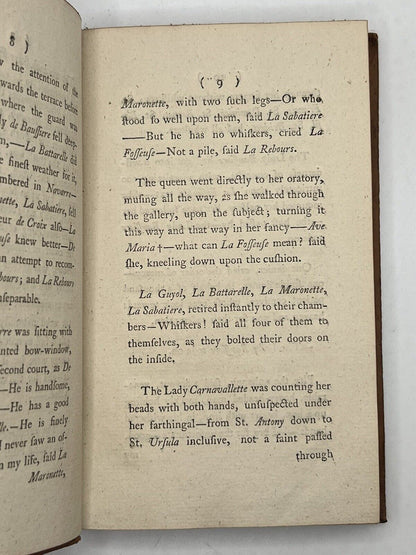 8 )
the attention of
wards the terrace before
where the guard was
de Bauſſiere fell deep-
La Battarelle did
fineſt weather for it
mbered in Navarre—
nette, La Sabatiere, fell
eur de Croix alſo—La
uſe knew better—De
an attempt to recom-
bours; and La Rebours
ſeparable.
rre was ſitting with
nted bow-window,
econd court, as De
—He is handſome,
—He has a good
lle.—He is finely
I never ſaw an of-
n my life, ſaid La
Maronette,
( 9 )
Maronette, with two ſuch legs—Or who
ſtood ſo well upon them, ſaid La Sabatiere
——But he has no whiſkers, cried La
Foſſeuſe—Not a pile, ſaid La Rebours.
The queen went directly to her oratory,
muſing all the way, as ſhe walked through
the gallery, upon the ſubject; turning it
this way and that way in her fancy——Ave
Maria †—what can La Foſſeuſe mean? ſaid
ſhe, kneeling down upon the cuſhion.
La Guyol, La Battarelle, La Maronette,
La Sabatiere, retired inſtantly to their cham-
bers—Whiſkers! ſaid all four of them to
themſelves, as they bolted their doors on
the inſide.
The Lady Carnavallette was counting her
beads with both hands, unſuſpected under
her farthingal—from St. Antony down to
St. Urſula incluſive, not a ſaint paſſed
through